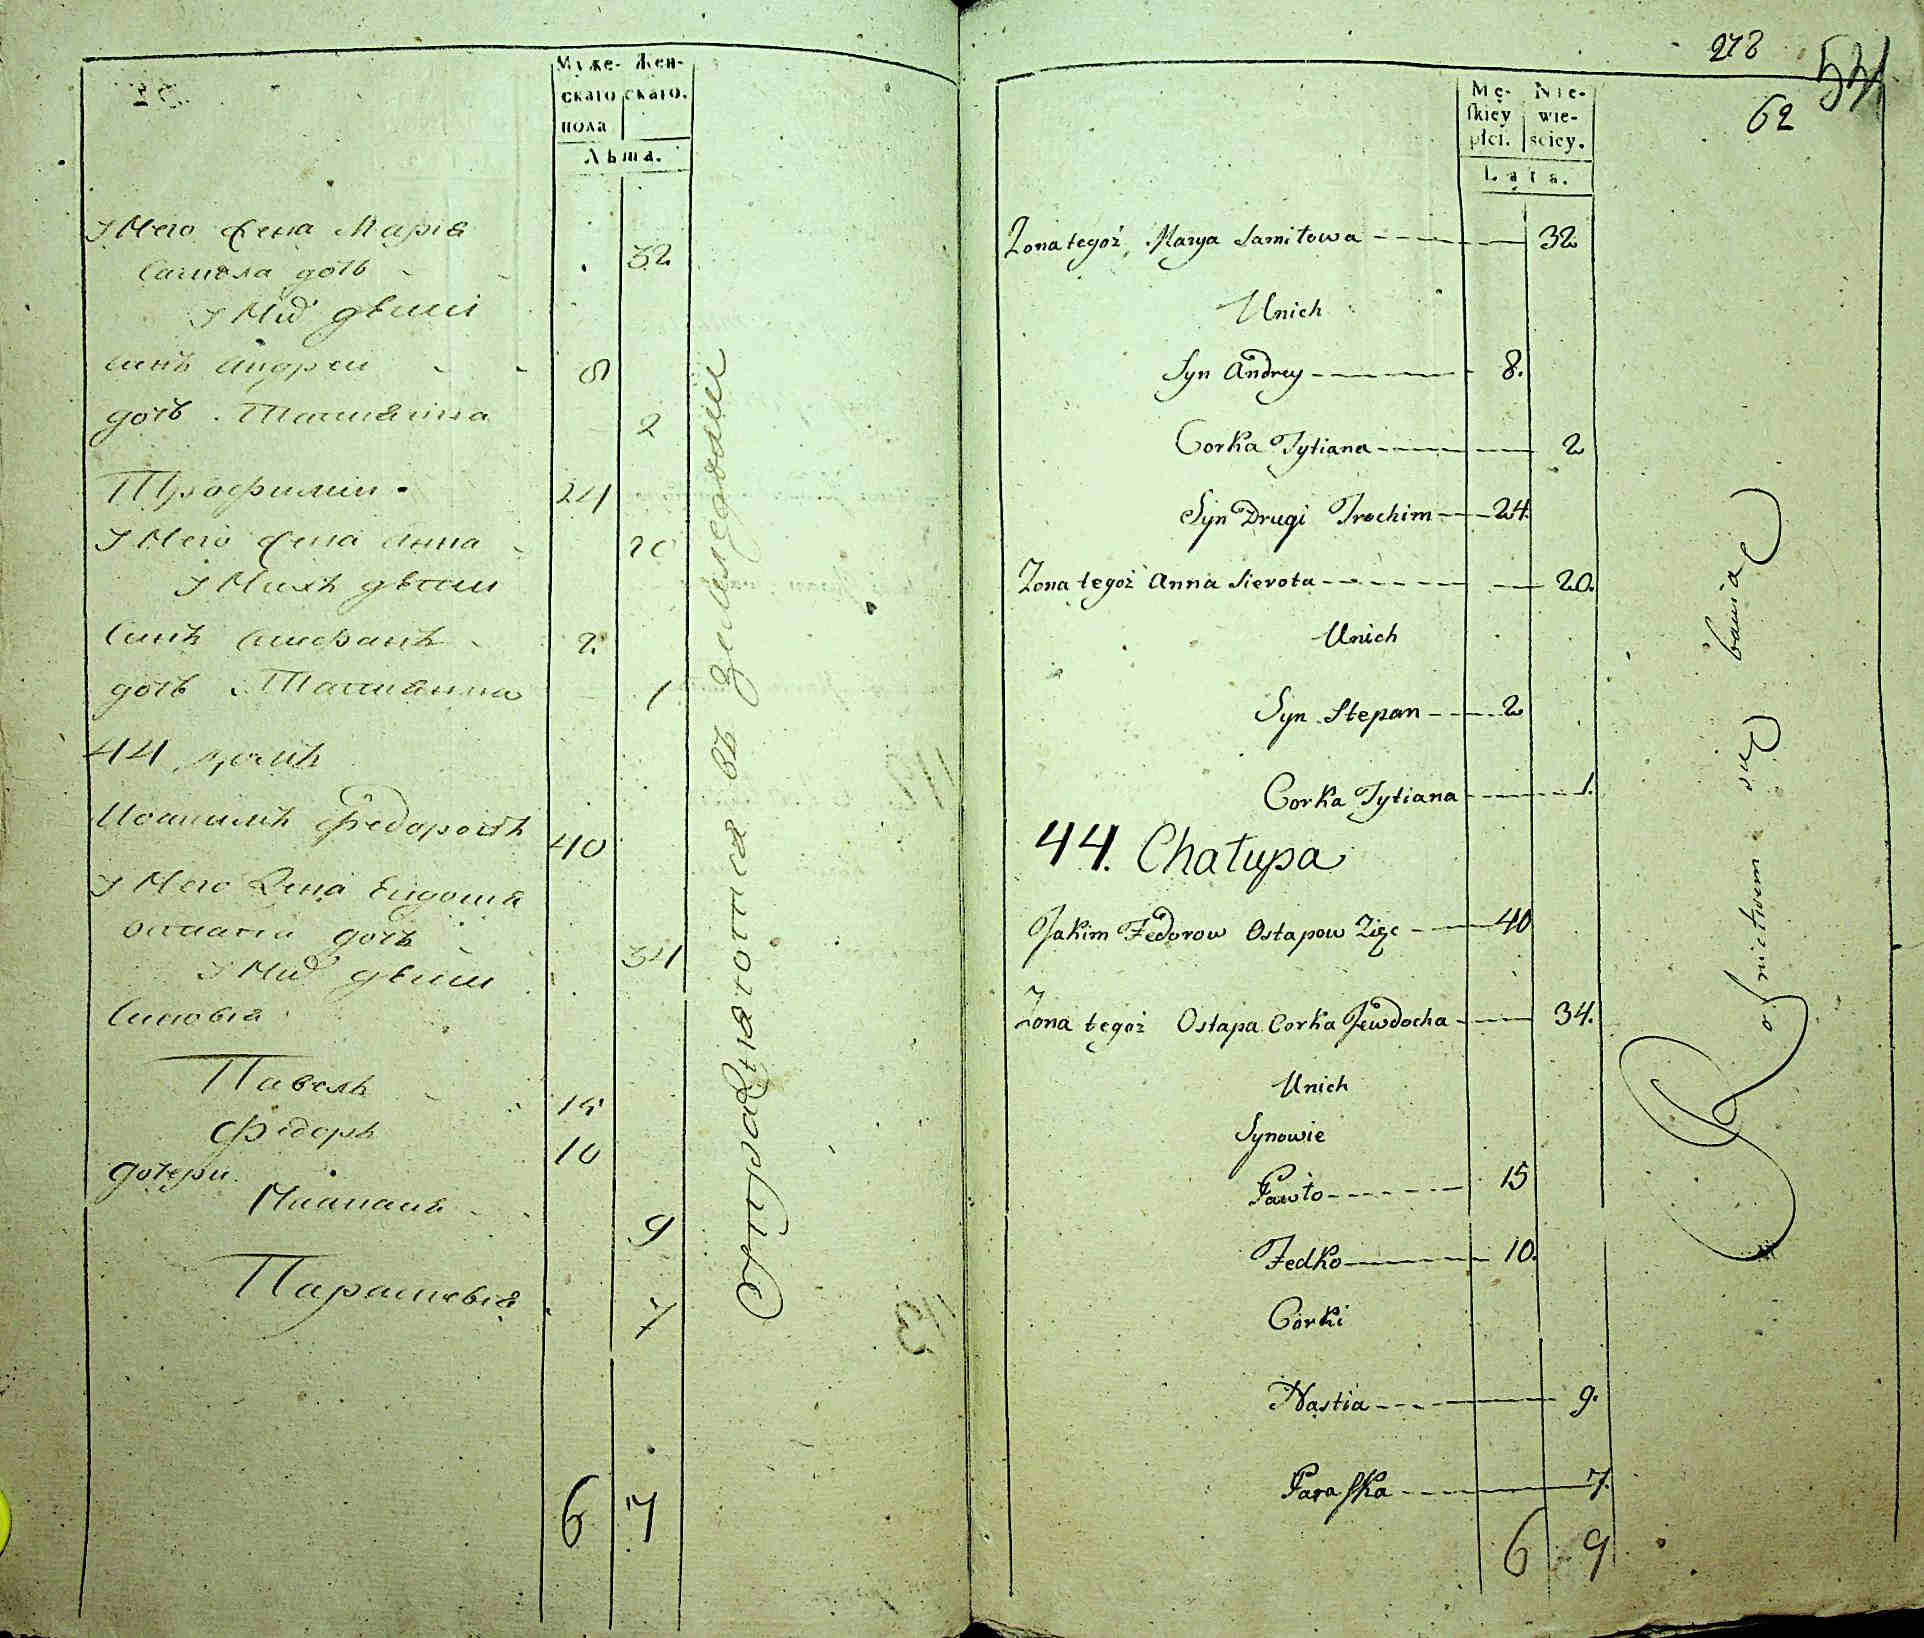 Муже- Жен-
скаго скаго.
пола
Лѣта.
У Него жена Марія
Самоила дочь 32
У Них дѣти
Синъ Андреи 8
дочь Татиянна 2
Трофимъ 24
У Него жена Анна 20
У Нихъ дѣти
Синъ Стефанъ 2.
дочь Татиянна 1
44 домъ
Иоакимъ Федоровъ 40
У Него Жена Евдокия
Остапа дочь 34
У Них дѣти
Синовя
Павелъ 15
Федоръ 10
дочери
7
Параскевія
9
6 7
упражняются въ земледѣлии
278
54
62
Mę- Nie-
skiey wie-
płci. sciey.
Lata.
Zona tegoż, Marya Samiłowa 32
U nich
Syn Andrey 8.
Corka Tytiana 2
Syn Drugi Trochim 24.
Zona tegoż Anna Sierota 20.
U nich
Syn Stepan 2
Corka Tytiana 1.
44. Chałupa
Jakim Fedorow Ostapow Zięc 40
Zona tegoż Ostapa Corka Jewdocha 34.
U nich
Synowie
Pawło 15
Fedko 10.
Corki
Nastia 9.
Paraska 7.
6 9
Rolnictwem się bawią